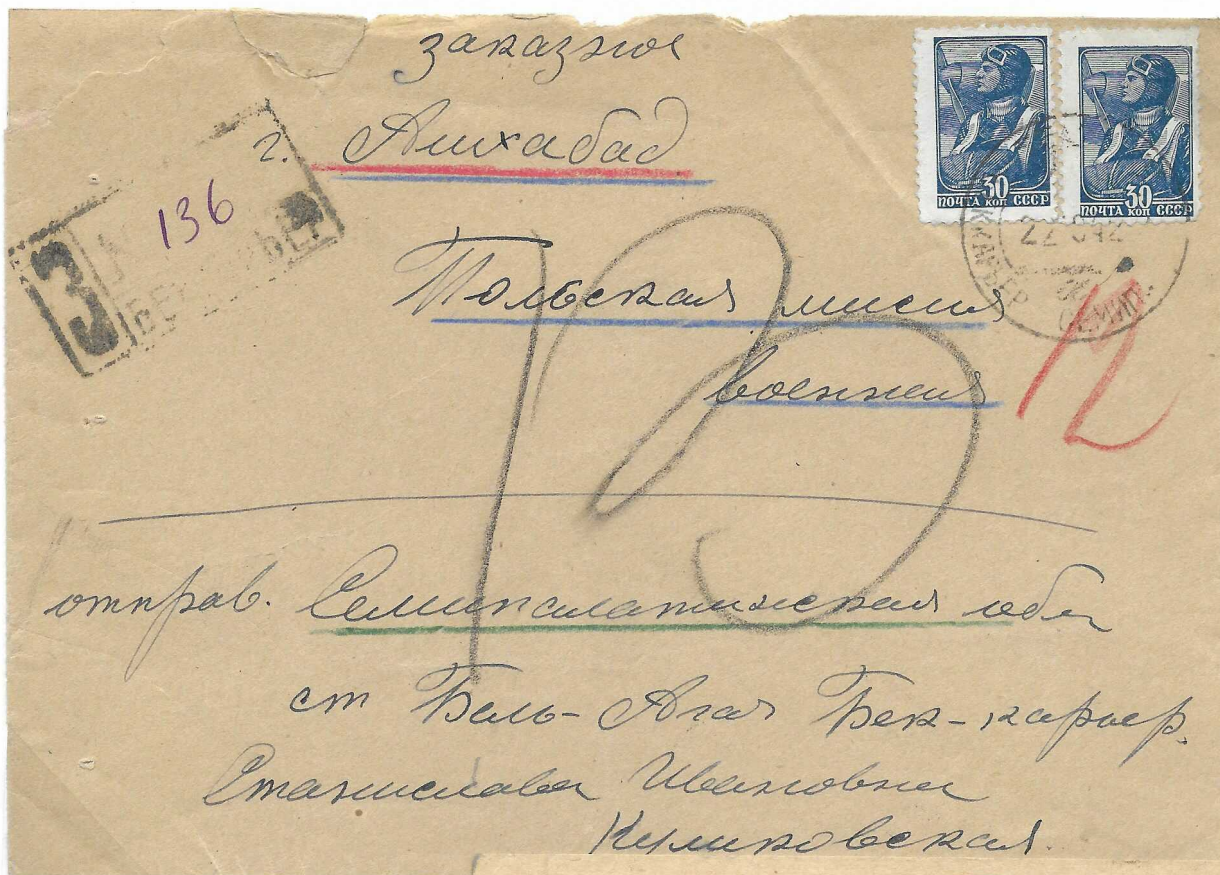 заказная
г. Ашхабад
З
№ 136
БЕК КАРЬЕР
30
ПОЧТА КОП СССР
30
ПОЧТА КОП СССР
КАРЬЕР
СЕМИП.
Польская мисия
военная
12
13
отправ. Семипалатинская обл
ст Бель-Агаз Бек-карьер.
Станислава Ивановна
Куликовская